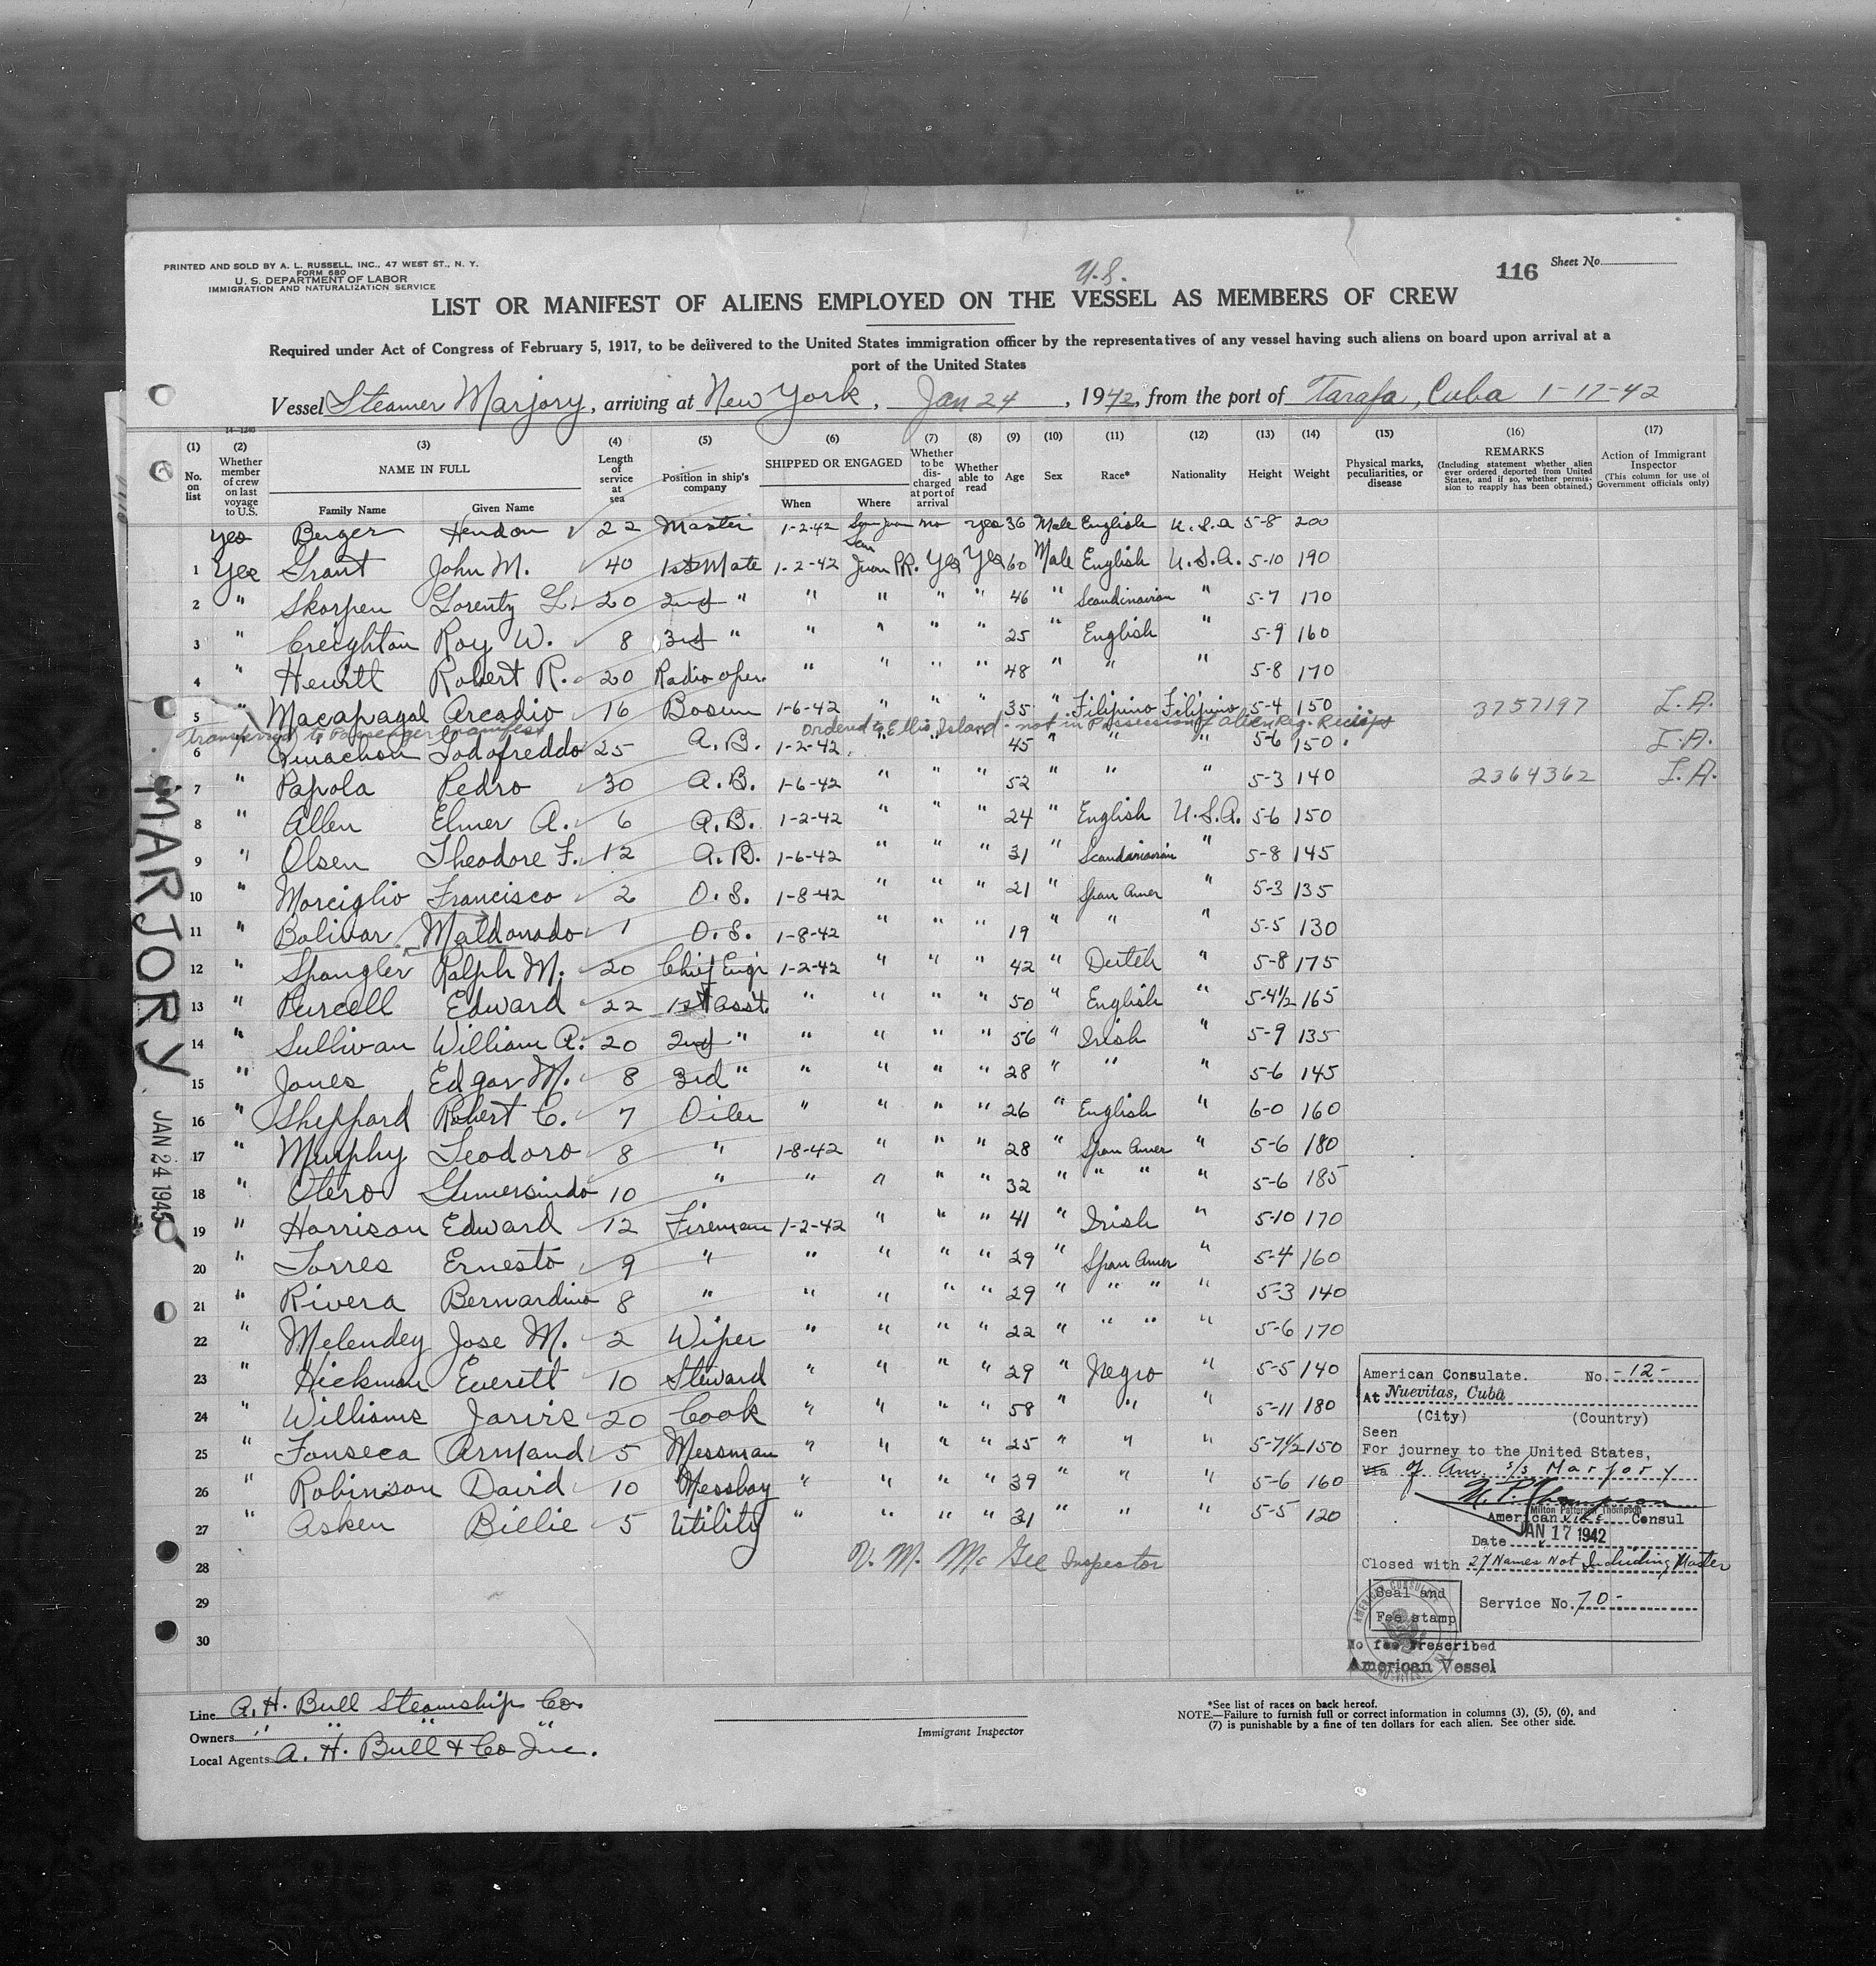 PRINTED AND SOLD BY A. L. RUSSELL, INC., 47 WEST ST., N. Y.
FORM 680
U. S. DEPARTMENT OF LABOR
IMMIGRATION AND NATURALIZATION SERVICE
U.S.
116 Sheet No.
LIST OR MANIFEST OF ALIENS EMPLOYED ON THE VESSEL AS MEMBERS OF CREW
Required under Act of Congress of February 5, 1917, to be delivered to the United States immigration officer by the representatives of any vessel having such aliens on board upon arrival at a
port of the United States
Vessel Steamer Marjory, arriving at New York, Jan 24, 1942, from the port of Tarafa, Cuba 1-17-42
14-1240
(1) (2) (3) (4) (5) (6) (7) (8) (9) (10) (11) (12) (13) (14) (15) (16) (17)
No. on list
Whether member of crew on last voyage to U.S.
NAME IN FULL
Family Name Given Name
Length of service at sea
Position in ship's company
SHIPPED OR ENGAGED
When Where
Whether to be discharged at port of arrival
Whether able to read
Age Sex Race* Nationality Height Weight
Physical marks, peculiarities, or disease
REMARKS
(Including statement whether alien ever ordered deported from United States, and if so, whether permission to reapply has been obtained.)
Action of Immigrant Inspector
(This column for use of Government officials only)
yes Berger Hendon 22 Master 1-2-42 San Juan no yes 36 Male English U.S.A 5-8 200
1 Yes Grant John M. 40 1st Mate 1-2-42 San Juan P.R. Yes Yes 60 Male English U.S.A. 5-10 190
2 " Skorpen Lorentz L. 20 2nd " " " " " 46 " Scandinavian " 5-7 170
3 " Creighton Roy W. 8 3rd " " " " " 25 " English " 5-9 160
4 " Hewitt Robert R. 20 Radio oper. " " " " 48 " " " 5-8 170
5 " Macapagal Arcadio 16 Bosun 1-6-42 " " " 35 " Filipino Filipino 5-4 150 3757197 I.A.
Transferred to Passenger Manifest Ordered to Ellis Island - not in Possession of alien Reg. Receipt
6 Godofreddo 25 A.B. 1-2-42 " " " 45 " " " 5-6 150 I.A.
7 " Papola Pedro 30 A.B. 1-6-42 " " " 52 " " " 5-3 140 2364362 I.A.
8 " Allen Elmer A. 6 A.B. 1-2-42 " " " 24 " English U.S.A. 5-6 150
9 " Olsen Theodore F. 12 A.B. 1-6-42 " " " 31 " Scandanavian " 5-8 145
10 " Morciglio Francisco 2 O.S. 1-8-42 " " " 21 " Span Amer " 5-3 135
11 " Bolivar Maldonado 1 O.S. 1-8-42 " " " 19 " " " 5-5 130
12 " Spangler Ralph M. 20 Chief Eng'r 1-2-42 " " " 42 " Dutch " 5-8 175
13 " Purcell Edward 22 1st asst. " " " " 50 " English " 5-4½ 165
14 " Sullivan William A. 20 2nd " " " " " 56 " Irish " 5-9 135
15 " Jones Edgar M. 8 3rd " " " " " 28 " " " 5-6 145
16 " Sheppard Robert C. 7 Oiler " " " " 26 " English " 6-0 160
17 " Murphy Teodoro 8 " 1-8-42 " " " 28 " Span Amer " 5-6 180
18 " Otero Gumersindo 10 " " " " " 32 " " " " 5-6 185
19 " Harrison Edward 12 Fireman 1-2-42 " " " 41 " Irish " 5-10 170
20 " Torres Ernesto 9 " " " " " 29 " Span Amer " 5-4 160
21 " Rivera Bernardino 8 " " " " " 29 " " " " 5-3 140
22 " Melendez Jose M. 2 Wiper " " " " 22 " " " " 5-6 170
23 " Hickman Everett 10 Steward " " " " 29 " Negro " 5-5 140
24 " Williams Jarvis 20 Cook " " " " 58 " " " 5-11 180
25 " Fonseca Armand 5 Messman " " " " 25 " " " 5-7½ 150
26 " Robinson David 10 Messboy " " " " 39 " " " 5-6 160
27 " Asken Billie 5 Utility " " " " 31 " " " 5-5 120
28 V. M. McGee Inspector
29
30
MARJORY
JAN 24 1945
American Consulate. No. -12-
At Nuevitas, Cuba
(City) (Country)
Seen
For journey to the United States,
Via of Am. s/s Marjory
M. P. Thompson
Milton Patterson Thompson
American Vice Consul
Date JAN 17 1942
Closed with 27 Names Not Including Master
Seal and
Fee stamp
Service No. 70-
No fee Prescribed
American Vessel
Line A. H. Bull Steamship Co.
Owners " " " "
Local Agents A. H. Bull & Co Inc.
Immigrant Inspector
*See list of races on back hereof.
NOTE.—Failure to furnish full or correct information in columns (3), (5), (6), and
(7) is punishable by a fine of ten dollars for each alien. See other side.